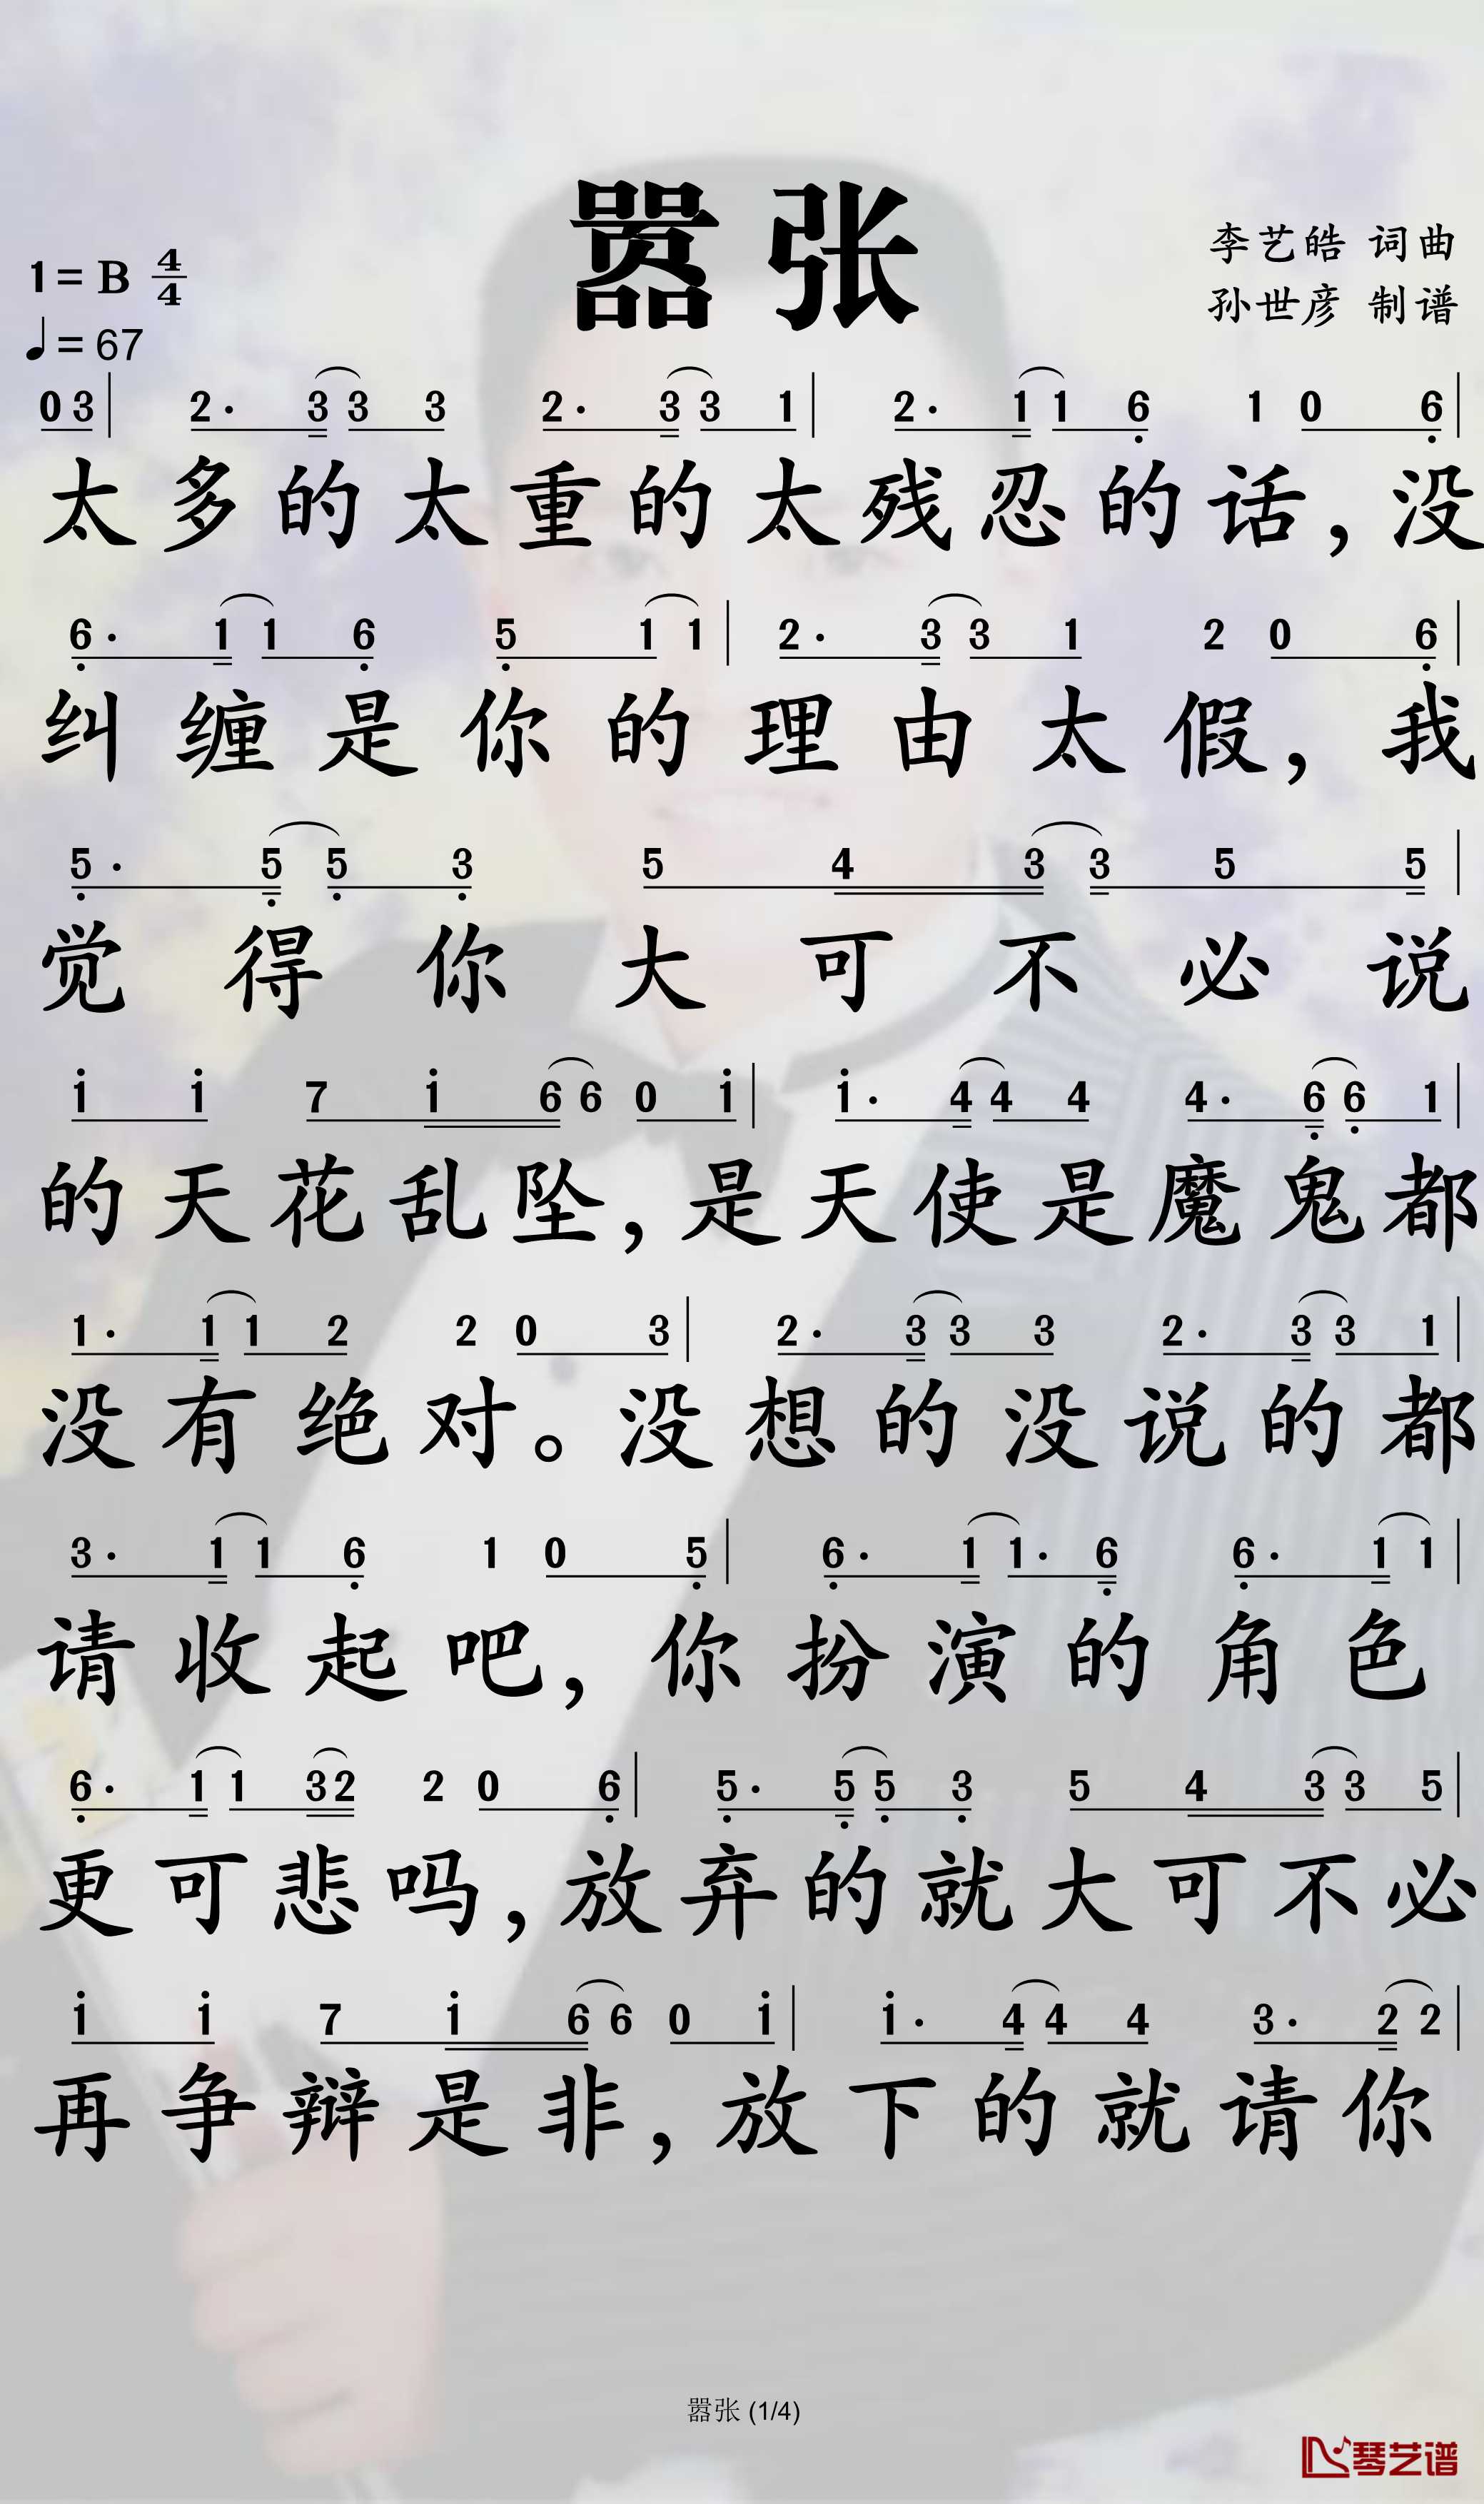 嚣张
李艺皓 词曲
1= B 4/4
孙世彦 制谱
♩= 67
0 3 | 2· 3 3 3 2· 3 3 1 | 2· 1 1 6 1 0 6 |
太多的太重的太残忍的话，没
6· 1 1 6 5 1 1 | 2· 3 3 1 2 0 6 |
纠缠是你的理由太假，我
5· 5 5 3 5 4 3 3 5 5 |
觉得你大可不必说
i i 7 i 6 6 0 i | i· 4 4 4 4· 6 6 1 |
的天花乱坠，是天使是魔鬼都
1· 1 1 2 2 0 3 | 2· 3 3 3 2· 3 3 1 |
没有绝对。没想的没说的都
3· 1 1 6 1 0 5 | 6· 1 1· 6 6· 1 1 |
请收起吧，你扮演的角色
6· 1 1 3 2 2 0 6 | 5· 5 5 3 5 4 3 3 5 |
更可悲吗，放弃的就大可不必
i i 7 i 6 6 0 i | i· 4 4 4 3· 2 2 |
再争辩是非，放下的就请你
嚣张 (1/4)
琴艺谱